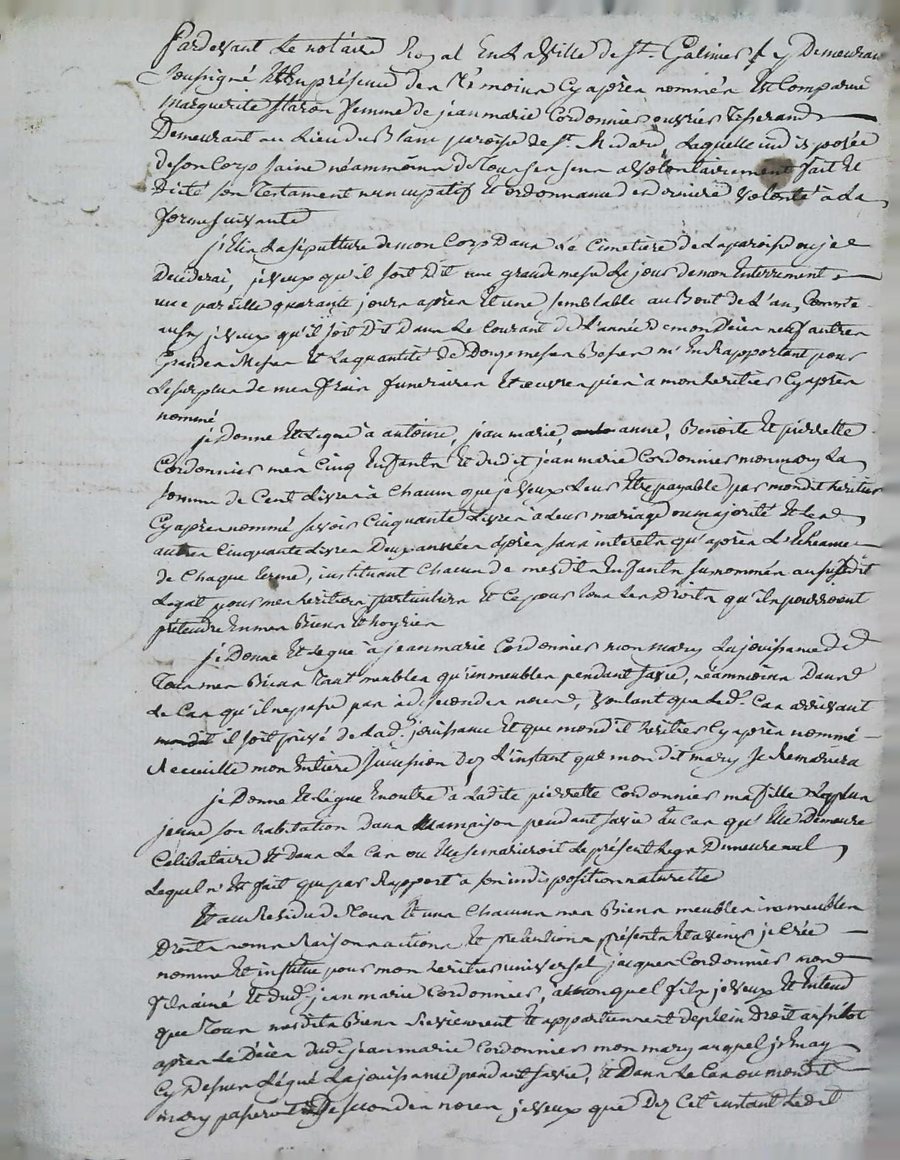 Pardevant Le notaire Royal En La Ville de St. Galmier & y Demeurant
soussigné Et En présence des Témoins Cy après nommés Est Comparue
Marguerite femme de jean marie Cordonnier ouvrier Tisserand
Demeurant au Lieu du Blanc paroisse de St. Médard, Laquelle indisposée
de son Corps saine néammoins de Tous ses sens a volontairement fait Et
Dicté son Testament nuncupatif Et ordonnance de derniere volonté à La
forme suivante
j'Elis La sépulture de mon Corps Dans Le Cimetière de La paroisse ou je
Décéderai, je veux qu'il soit Dit une grande messe Le jour de mon Enterrement
une pareille quarante jours après Et une semblable au Bout de L'an, Comme
aussy je veux qu'il soit Dit Dans Le Courant de L'année de mon Décès neuf autres
Grandes Messes Et La quantité de Douze messes Basses m'En Rapportant pour
Le surplus de mes frais funeraires Et œuvres pies à mon heritier Cy après
nommé
je Donne Et Legue à antoine, jean marie, anne, Benoite Et pierrette
Cordonnier mes Cinq Enfants Et dudit jean marie Cordonnier mon mary La
somme de Cent Livres à Chacun que je veux Leur Etre payable par mondit heritier
Cy après nommé savoir Cinquante Livres à Leur mariage ou majorité Et Les
autres Cinquante Livres Deux années après sans interets qu'après L'Echeance
de Chaque terme, instituant Chacun de mesdits Enfants surnommés au susdit
Legat pour mes heritiers particuliers Et Ce pour tous Les Droits qu'ils pourroient
prétendre En mes Biens Et hoyries
je Donne Et Legue à jean marie Cordonnier mon mary La jouissance de
Tous mes Biens Tant meubles qu'immeubles pendant sa vie, néammoins Dans
Le Cas qu'il ne passe pas à de secondes noces, voulant que Led. Cas arrivant
il soit privé de Lad. jouissance Et que mondit heritier Cy après nommé
Recueille mon Entiere succession Dez L'instant que mondit mary se Remariera
je Donne Et Legue En outre à Ladite pierrette Cordonnier ma fille La plus
jeune son habitation Dans Ma maison pendant sa vie au Cas qu'Elle Demeure
Celibataire Et dans Le Cas ou Elle se marieroit Le présent Legs Demeure nul
Lequel n'Est fait que par Rapport à son indisposition naturelle
Et au Residu de Tous Et uns Chacuns mes Biens meubles immeubles
Droits noms Raisons actions Et pretentions présents Et avenir je Crée
nomme Et institue pour mon heritier universel jacques Cordonnier mon
fils ainé Et dud. jean marie Cordonnier, auquel fils je veux Et Entend
que Tous mesdits Biens Reviennent Et appartiennent de plein Droit aussitot
après Le Décès dud. jean marie Cordonnier mon mary auquel je n'ay
Cy Dessus Légué La jouissance pendant sa vie, Et Dans Le Cas ou mondit
mary passeroit à De secondes noces je veux que Dez Cet instant Ledit